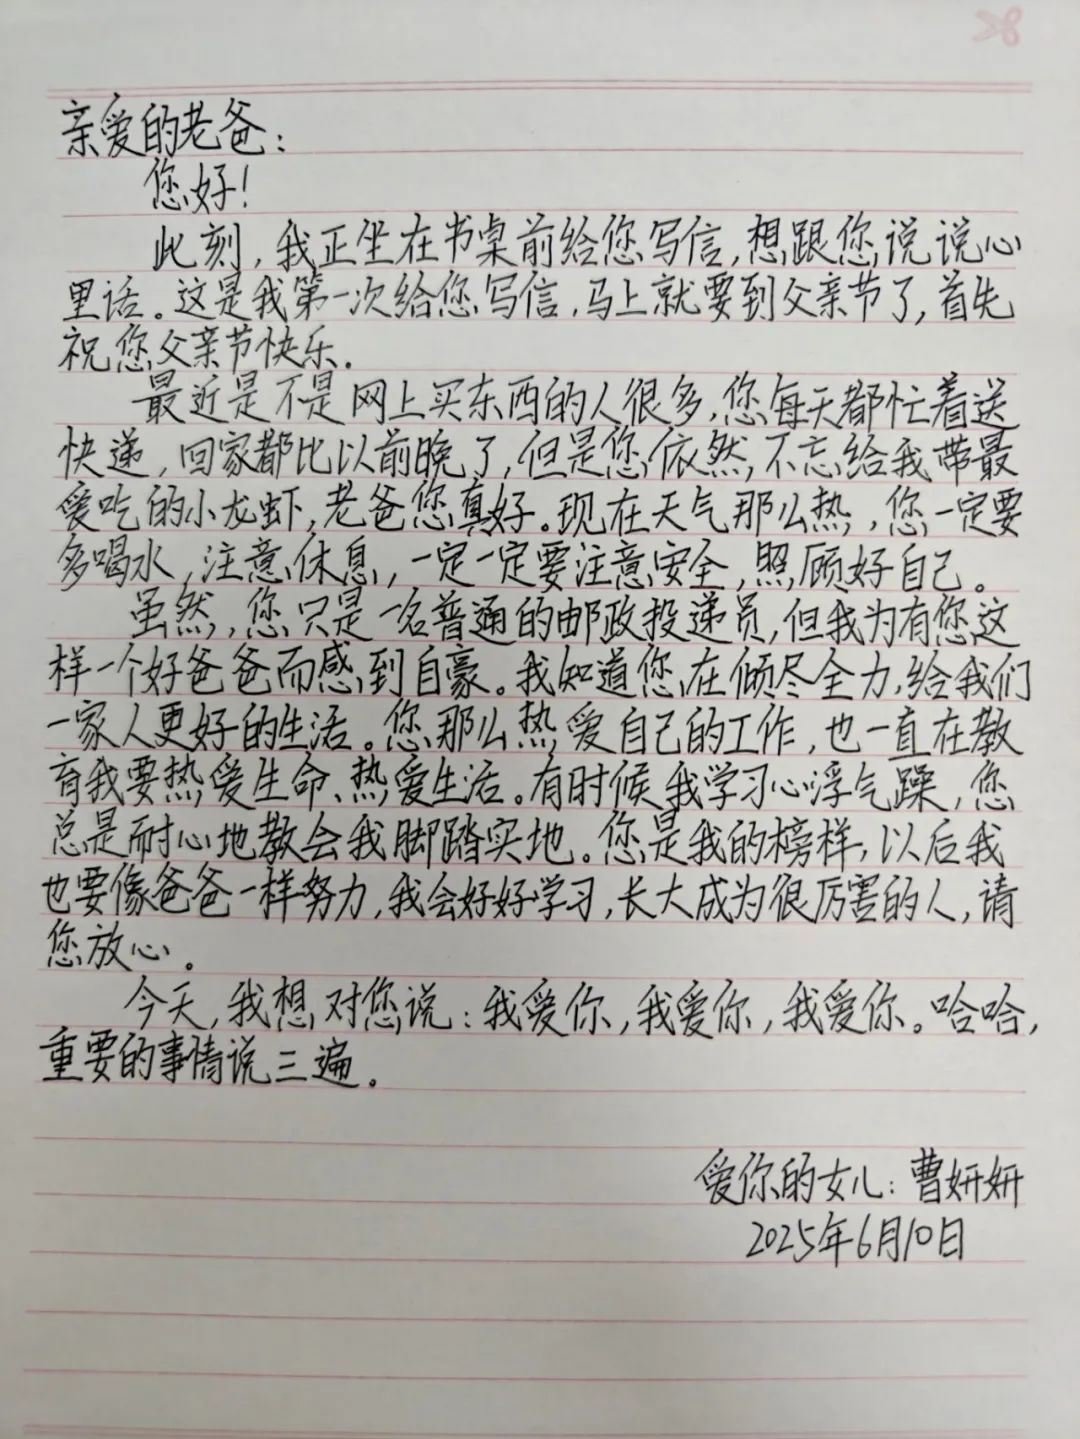 亲爱的老爸：
您好！
此刻，我正坐在书桌前给您写信，想跟您说说心
里话。这是我第一次给您写信，马上就要到父亲节了，首先
祝您父亲节快乐.
最近是不是网上买东西的人很多，您每天都忙着送
快递，回家都比以前晚了，但是您依然不忘给我带最
爱吃的小龙虾，老爸您真好。现在天气那么热，您一定要
多喝水，注意休息，一定一定要注意安全，照顾好自己。
虽然，您只是一名普通的邮政投递员，但我为有您这
样一个好爸爸而感到自豪。我知道您在倾尽全力，给我们
一家人更好的生活。您那么热爱自己的工作，也一直在教
育我要热爱生命、热爱生活。有时候我学习心浮气躁，您
总是耐心地教会我脚踏实地。您是我的榜样，以后我
也要像爸爸一样努力，我会好好学习，长大成为很厉害的人，请
您放心。
今天，我想对您说：我爱你，我爱你，我爱你。哈哈，
重要的事情说三遍。
爱你的女儿：曹妍妍
2025年6月10日